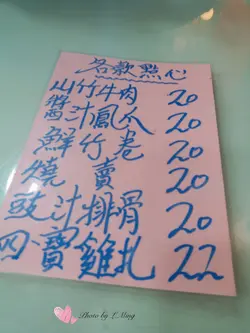 各款點心
山竹牛肉 20
醬汁鳳爪 20
鮮竹卷 20
燒賣 20
豉汁排骨 20
四寶雞扎 22
Photo by L.Ming